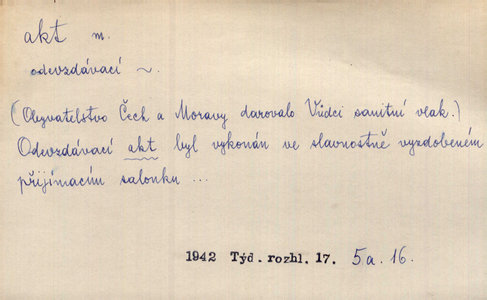 akt m.
odevzdávací ~.
(Obyvatelstvo Čech a Moravy darovalo Vůdci sanitní vlak.)
Odevzdávací akt byl vykonán ve slavnostně vyzdobeném
přijímacím salonku ...
1942 Týd. rozhl. 17. 5a. 16.